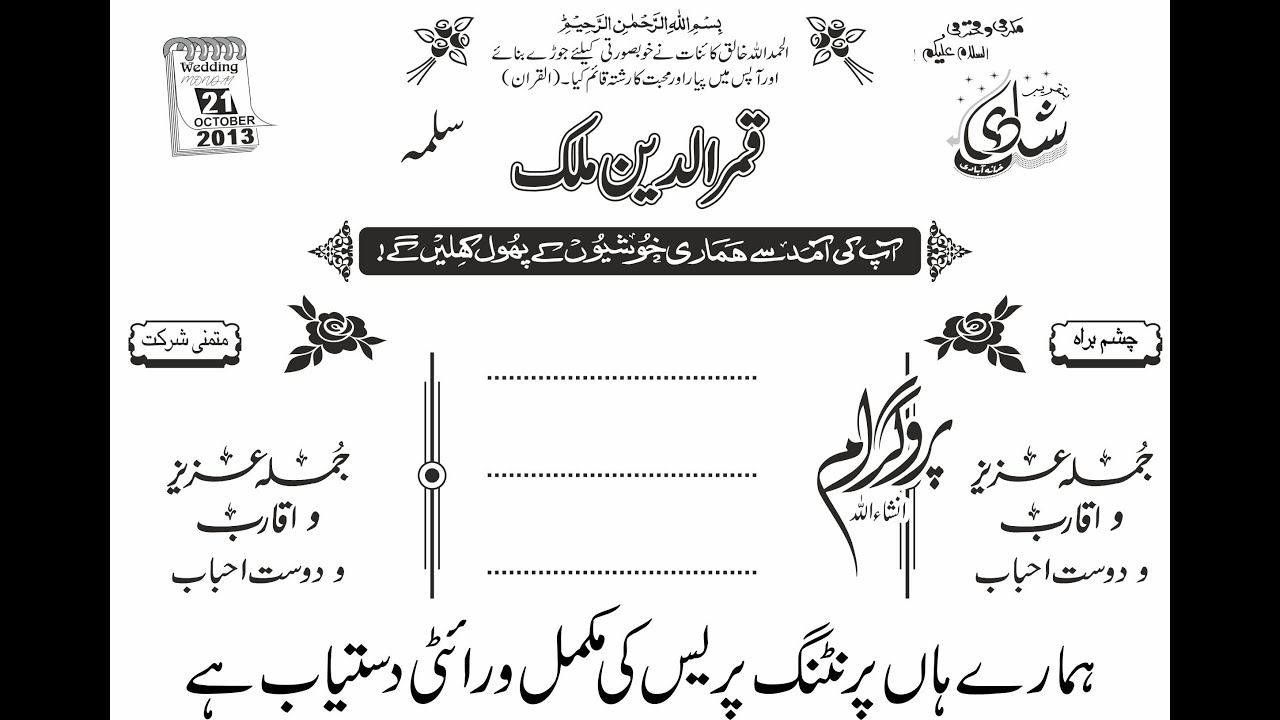 بِسْمِ اللهِ الرَّحْمٰنِ الرَّحِیْمِ
الحمد اللہ خالق کائنات نے خوبصورتی کیلئے جوڑے بنائے
اور آپس میں پیار اور محبت کا رشتہ قائم کیا۔ (القران)
مکرمی و محترمی
السلام علیکم !
تقریب
شادی
خانہ آبادی
Wedding
MONDAY
21
OCTOBER
2013
سلمہ
قمرالدین ملک
آپ کی آمد سے ہماری خوشیوں کے پھول کھلیں گے!
چشم براہ
متمنی شرکت
پروگرام
انشاءاللہ
جُملہ عزیز
و اقارب
و دوست احباب
جُملہ عزیز
و اقارب
و دوست احباب
ہمارے ہاں پرنٹنگ پریس کی مکمل ورائٹی دستیاب ہے